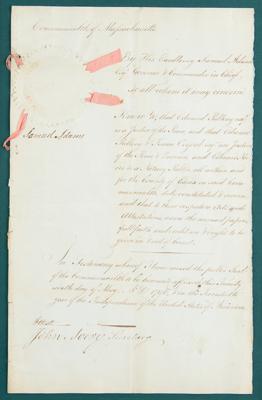 Commonwealth of Massachusetts
By His Excellency Samuel Adams
Esqr Governor & Commander in Chief,
to all whom it may concern
Know Ye, that Edward Pulling esqr is
a Justice of the Peace, and that Edward
Pulling &
the Peace & Quorum, and Edward
is a Notary Public, all within and
for the County of Essex in said Common
wealth, duly constituted & sworn,
and that to their respective Acts and
Attestations, upon the annexed papers,
full faith and credit is & ought to be
given in & out of Court.
Samuel Adams
In Testimony whereof I have caused the public Seal
of the Commonwealth to be hereunto affixed this Twenty
day of May A.D. 1796, & in the Twentieth
year of the Independence of the United States of America.
Attest
John Avery Secretary